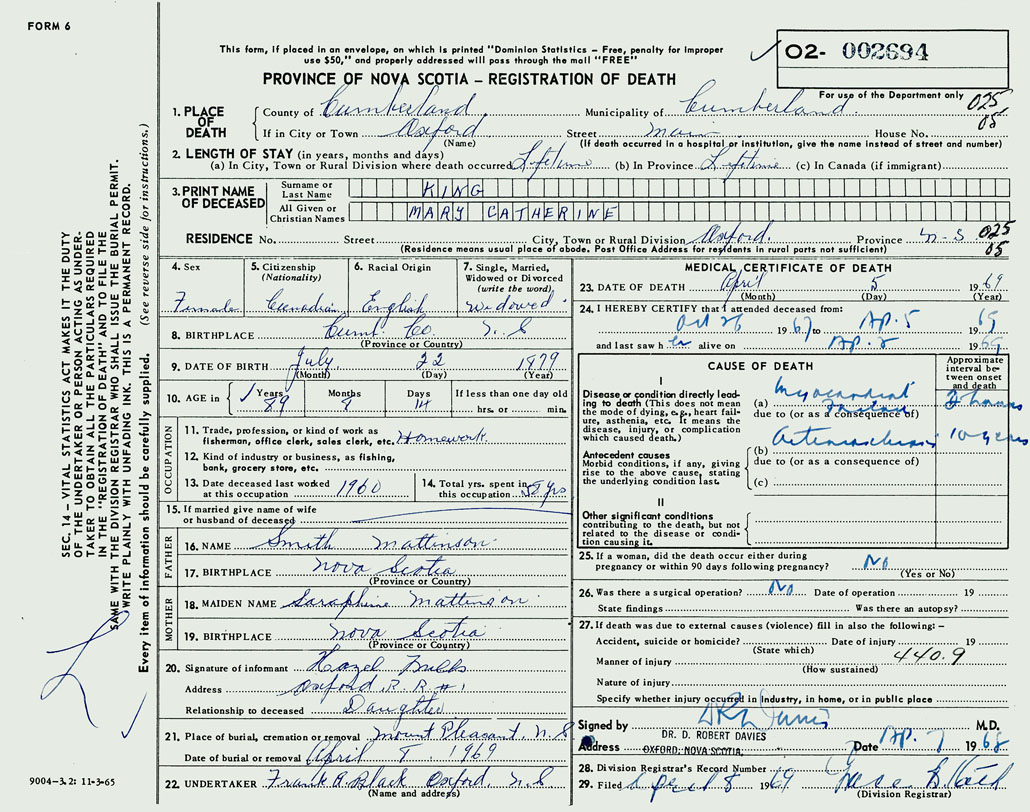 FORM 6
This form, if placed in an envelope, on which is printed "Dominion Statistics – Free, penalty for improper
use $50," and properly addressed will pass through the mail "FREE"
PROVINCE OF NOVA SCOTIA – REGISTRATION OF DEATH
02- 002694
For use of the Department only 025
05
1. PLACE OF DEATH
County of Cumberland Municipality of Cumberland
If in City or Town Oxford Street Main House No.
(Name) (If death occurred in a hospital or institution, give the name instead of street and number)
2. LENGTH OF STAY (in years, months and days)
(a) In City, Town or Rural Division where death occurred Lifetime (b) In Province Lifetime (c) In Canada (if immigrant)
3. PRINT NAME OF DECEASED
Surname or Last Name KING
All Given or Christian Names MARY CATHERINE
RESIDENCE No. Street City, Town or Rural Division Oxford. Province N-S 025
(Residence means usual place of abode. Post Office Address for residents in rural parts not sufficient) 05
4. Sex
Female
5. Citizenship
(Nationality)
Canadian
6. Racial Origin
English
7. Single, Married,
Widowed or Divorced
(write the word)
Widowed
8. BIRTHPLACE Cumb. Co. N.S
(Province or Country)
9. DATE OF BIRTH July 22 1879
(Month) (Day) (Year)
10. AGE in Years Months Days If less than one day old
89 14 hrs. or min.
OCCUPATION
11. Trade, profession, or kind of work as
fisherman, office clerk, sales clerk, etc. Homework
12. Kind of industry or business, as fishing,
bank, grocery store, etc.
13. Date deceased last worked
at this occupation 1960
14. Total yrs. spent in
this occupation yrs
15. If married give name of wife
or husband of deceased
FATHER
16. NAME Smith Mattinson
17. BIRTHPLACE Nova Scotia
(Province or Country)
MOTHER
18. MAIDEN NAME Saraphine Mattinson
19. BIRTHPLACE Nova Scotia
(Province or Country)
20. Signature of informant Hazel
Address Oxford, R. R. #1
Relationship to deceased Daughter
21. Place of burial, cremation or removal Mount Pleasant, N.S
Date of burial or removal April 8, 1969
22. UNDERTAKER Frank A. Black Oxford N.S
(Name and address)
MEDICAL CERTIFICATE OF DEATH
23. DATE OF DEATH April 5 1969
(Month) (Day) (Year)
24. I HEREBY CERTIFY that I attended deceased from:
Oct 26 1967 to Ap. 5 1969
and last saw her alive on Ap. 2 1969
CAUSE OF DEATH
Approximate
interval between
onset
and death
I
Disease or condition directly leading
to death (This does not mean
the mode of dying, e.g., heart failure,
asthenia, etc. It means the
disease, injury, or complication
which caused death.)
(a) Myocardial
due to (or as a consequence of) 3 hours
Antecedent causes
Morbid conditions, if any, giving
rise to the above cause, stating
the underlying condition last.
(b) Arteriosclerosis 10 years
due to (or as a consequence of)
(c)
II
Other significant conditions
contributing to the death, but not
related to the disease or condition
causing it.
25. If a woman, did the death occur either during
pregnancy or within 90 days following pregnancy? No
(Yes or No)
26. Was there a surgical operation? No Date of operation 19
State findings Was there an autopsy?
27. If death was due to external causes (violence) fill in also the following: –
Accident, suicide or homicide? Date of injury 19
(State which) 440.9
Manner of injury
(How sustained)
Nature of injury
Specify whether injury occurred in Industry, in home, or in public place
Signed by M.D.
DR. D. ROBERT DAVIES
Address OXFORD, NOVA SCOTIA, Date Ap. 7 1968
28. Division Registrar's Record Number
29. Filed April 8 1969
(Division Registrar)
SEC. 14 – VITAL STATISTICS ACT MAKES IT THE DUTY
OF THE UNDERTAKER OR PERSON ACTING AS UNDERTAKER
TO OBTAIN ALL THE PARTICULARS REQUIRED
IN THE "REGISTRATION OF DEATH" AND TO FILE THE
SAME WITH THE DIVISION REGISTRAR WHO SHALL ISSUE THE BURIAL PERMIT.
WRITE PLAINLY WITH UNFADING INK. THIS IS A PERMANENT RECORD.
Every item of information should be carefully supplied. (See reverse side for instructions.)
9004-3.2: 11-3-65